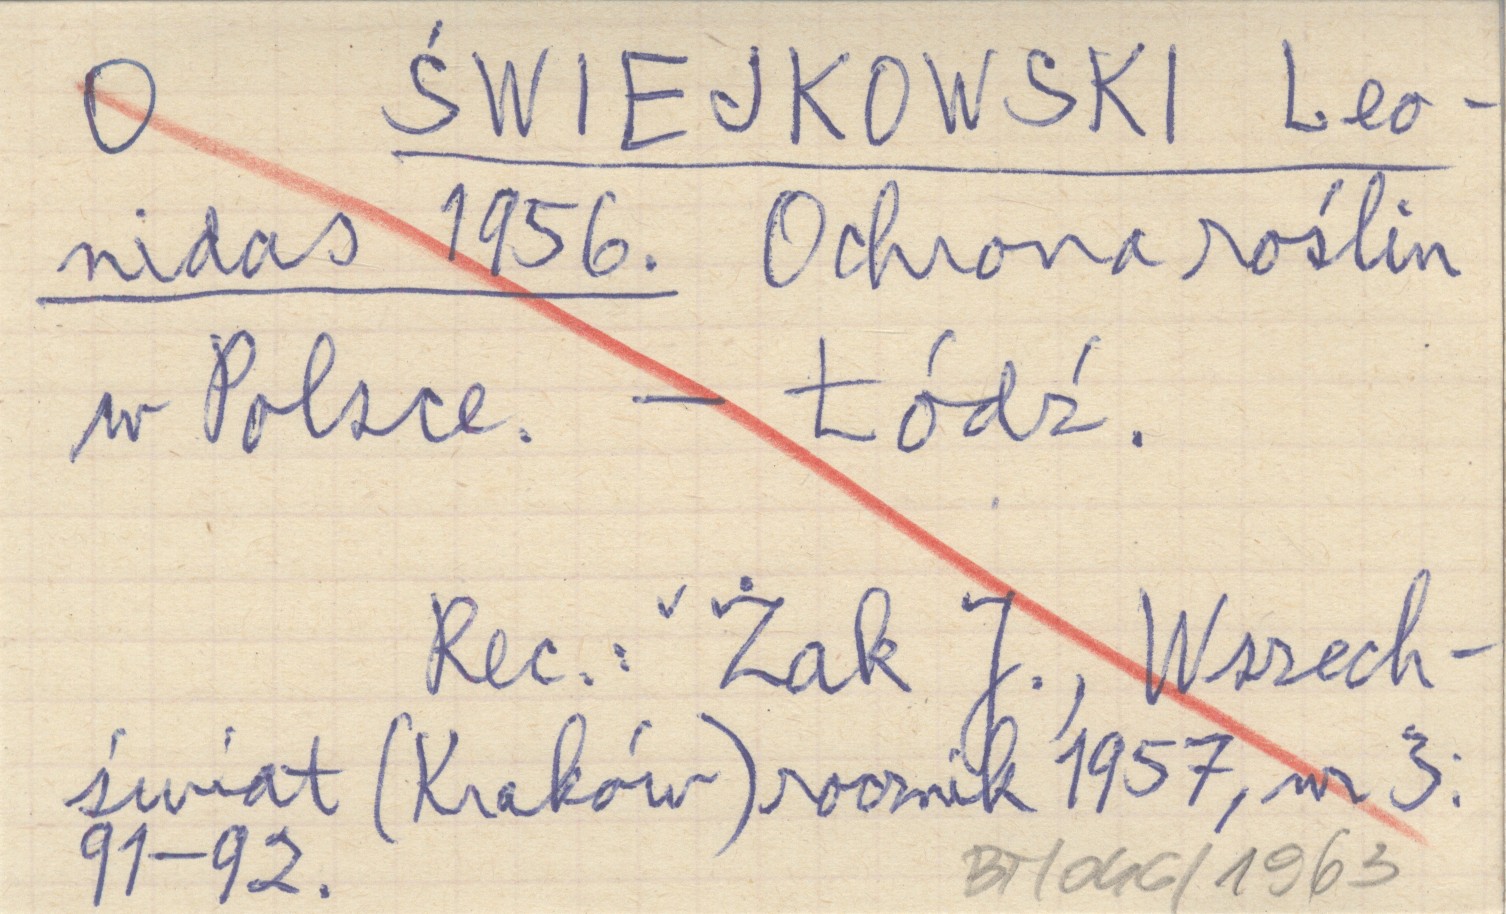 O ŚWIEJKOWSKI Leo-
nidas 1956. Ochrona roślin
w Polsce. — Łódź.
Rec.: Żak J., Wszech-
świat (Kraków) rocznik 1957, nr 3:
91-92.
1963